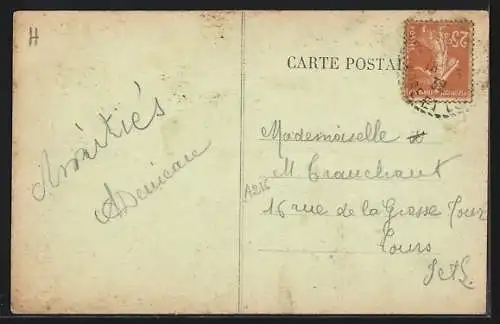 H
CARTE POSTAL
25c
Amitiés
A216
Mademoiselle
M Tranchant
16 rue de la Grosse Tour
Tours
I et L